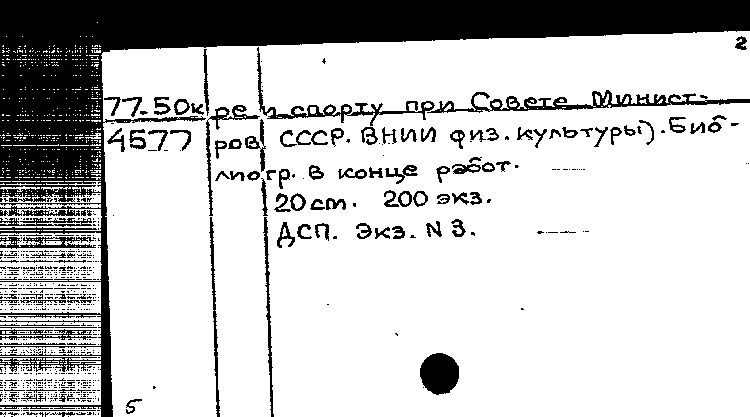 2
77-50к ре и спорту при Совете Минист-
4577 ров СССР. ВНИИ физ. культуры). Биб-
лиогр. в конце работ.
20 см. 200 экз.
ДСП. Экз. N 3.
5